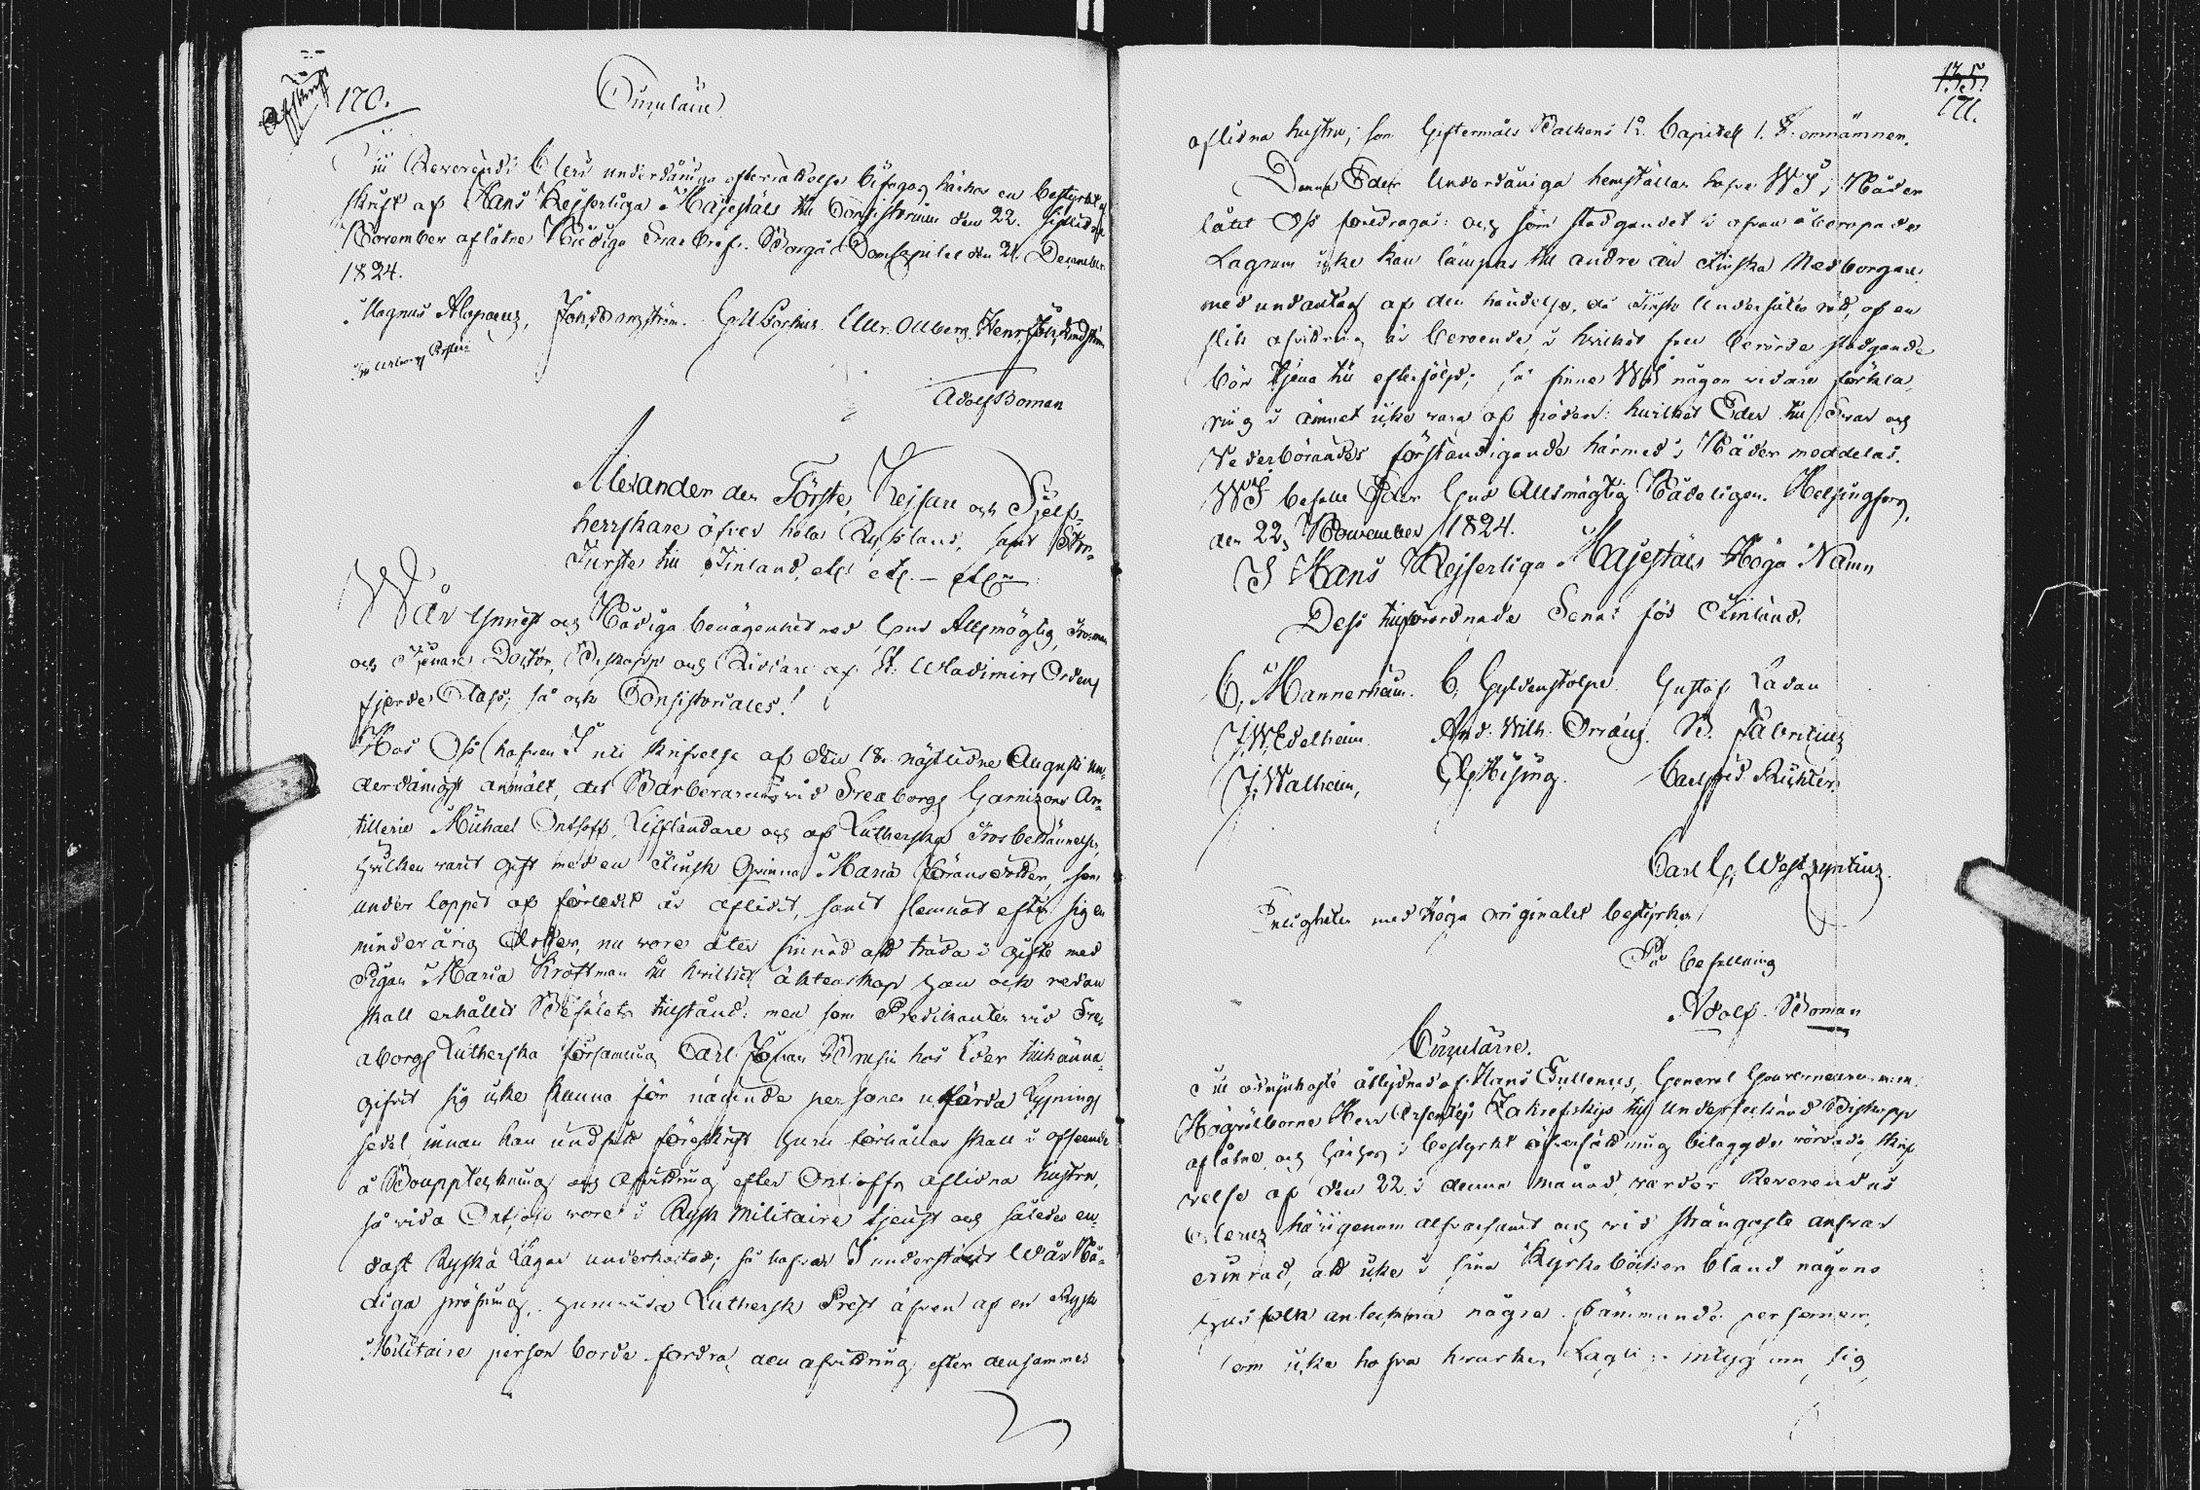 Afskrift
170.
Circulaire.
Till Reverendi Cleri underdåniga efterrättelse bifogas härhos en bestyrkt af
skrift af Hans Kejserliga Majestäts till Consistorium den 22. sistledne
November aflåtne Nådiga Svar bref. Borgå Domkapitel den 21. December
1824.
Magnus Alopaeus, Joh. Borgström. G. M. Borenius. Ulr. Ollberg. Henr. Joh.
Adolf Boman
Alexander den Förste, Kejsare och Sjelf-
herrskare öfver hela Ryssland, samt Stor-
Furste till Finland, etc. etc. – etc.
Wår ynnest och Nådiga benägenhet med Gud Allsmägtig, Troman
och Tjenare Doctor, Biskopp och Riddare af St. Wladimirs Ordens
fjerde Class; så ock Consistoriales!
Hos Oss hafven I uti skrifvelse af den 18. nästledne Augusti un-
derdånigst anmält, det Barberaren vid Sveaborgs Garnizons Ar-
tillerie Michael Ontjoff, Lifländare och af Lutherska Trosbekännelse,
hvilken varit gift med en Finsk Qvinna Maria Göransdotter, som
under loppet af förledit år aflidit, samt lemnat efter sig en
minderårig dotter, nu vore åter sinnad att träda i gifte med
Pigan Maria Kroftman till hvilket äktenskap han ock redan
skall erhållit Befälets tillstånd: men som Predikanten vid Sve-
aborgs Lutherska församling Carl Johan Brusin hos Eder tillkänna-
gifvit sig icke kunna för nämnde personer utfärda Lysnings
sedel, innan han undfått föreskrift huru förhållas skall i afseende
å Boupptekning och afvittring efter Ontjoffs aflidna hustru,
så vida Ontjoff vore i Rysk Militaire tjenst och således en-
dast Ryska Lagar underkastad; så hafven I underställt Wår Nå-
diga pröfning, hvruvida Luthersk Prest äfven af en Rysk
Militaire person borde fordra den afvittring efter densammes
175.
171.
aflidna hustru, som Giftermåls Balkens 12. Capitel 1. §. omnämner.
Denna Eder Underdåniga hemställan hafve WJ i Nåder
låtit Oss föredragas: och som stadgandet i ofvan åberopade
Lagrum icke kan lämpas till andre än Finska Medborgare,
med undantag af den händelse, då Finsk Undersåtes rätt, af en
slik afvittring är beroende, i hvilket fall berörde stadgande
bör tjena till efterföljd; så finne WJ någon vidare förkla-
ring i ämnet icke vara af nöden: hvilket Eder till Svar och
Vederbörandes förständigande härmed i Nåder meddelas.
WJ befalle Eder Gud Allsmägtig Nådeligen. Helsingfors,
den 22. November 1824.
I Hans Kejserliga Majestäts Höga Namn
Dess tillförordnade Senat för Finland.
C. Mannerheim. C. Gyldenstolpe. Gustaf Ladau
J. W. Edelheim. And. Wilh. Orræus. B. Fabritius
J. Walheim, C. G. Hising. Carl Fred. Richter.
Carl G. Westzynthius.
Enligheten med Höga originalet bestyrker
På befallning
Adolf Boman
Circulaire.
Till ödmjukaste åtlydnad af Hans Excellence, General Gouverneuren m. m.
Högvälborne Herr Arsenij Zakrefskijs till undertecknad Biskopp
aflåtne och härhos i bestyrkt öfversättning bilaggde vördade skrif
velse af den 22. i denna månad, varder Reverendus
Clerus härigenom alfvarsamt och vid strängaste ansvar
erinrad, att icke i sina Kyrkoböcker bland någons
husfolk anteckna några främmande personer,
som icke hafva hvarken Lagli intyg om sig